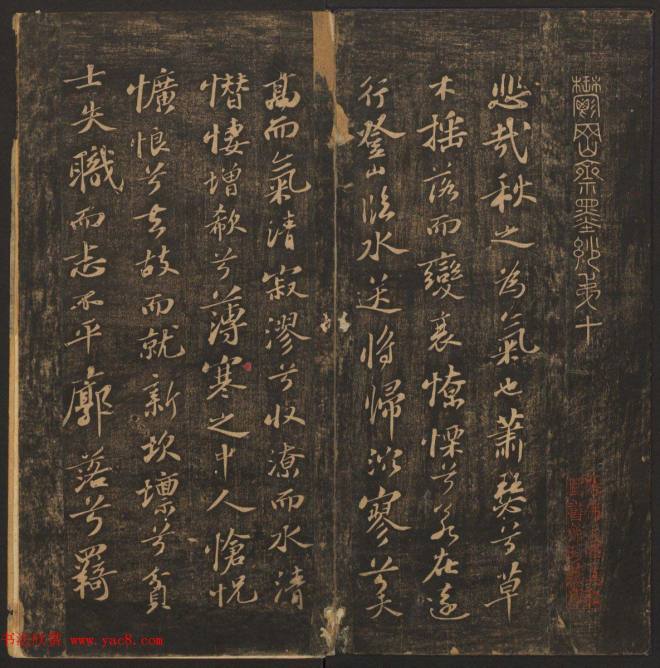 鬱岡齋墨妙第十
悲哉秋之為氣也蕭瑟兮草
木搖落而變衰憭慄兮若在遠
行登山臨水送將歸泬寥兮天
高而氣清寂漻兮收潦而水清
憯悽增欷兮薄寒之中人愴怳
懭悢兮去故而就新坎壈兮貧
士失職而志不平廓落兮羇
书法欣赏 www.yac8.com